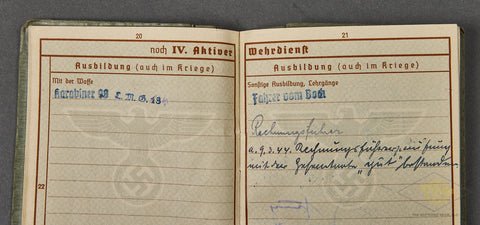 20
noch IV. Aktiver
Ausbildung (auch im Kriege)
Mit der Waffe
Karabiner 98 L. M. G. 13
22
21
Wehrdienst
Ausbildung (auch im Kriege)
Sonstige Ausbildung, Lehrgänge
Fahrer vom Bock
Rechnungsführer
9.3.44. Rechnungsführerprüfung
mit der Gesamtnote "gut" bestanden